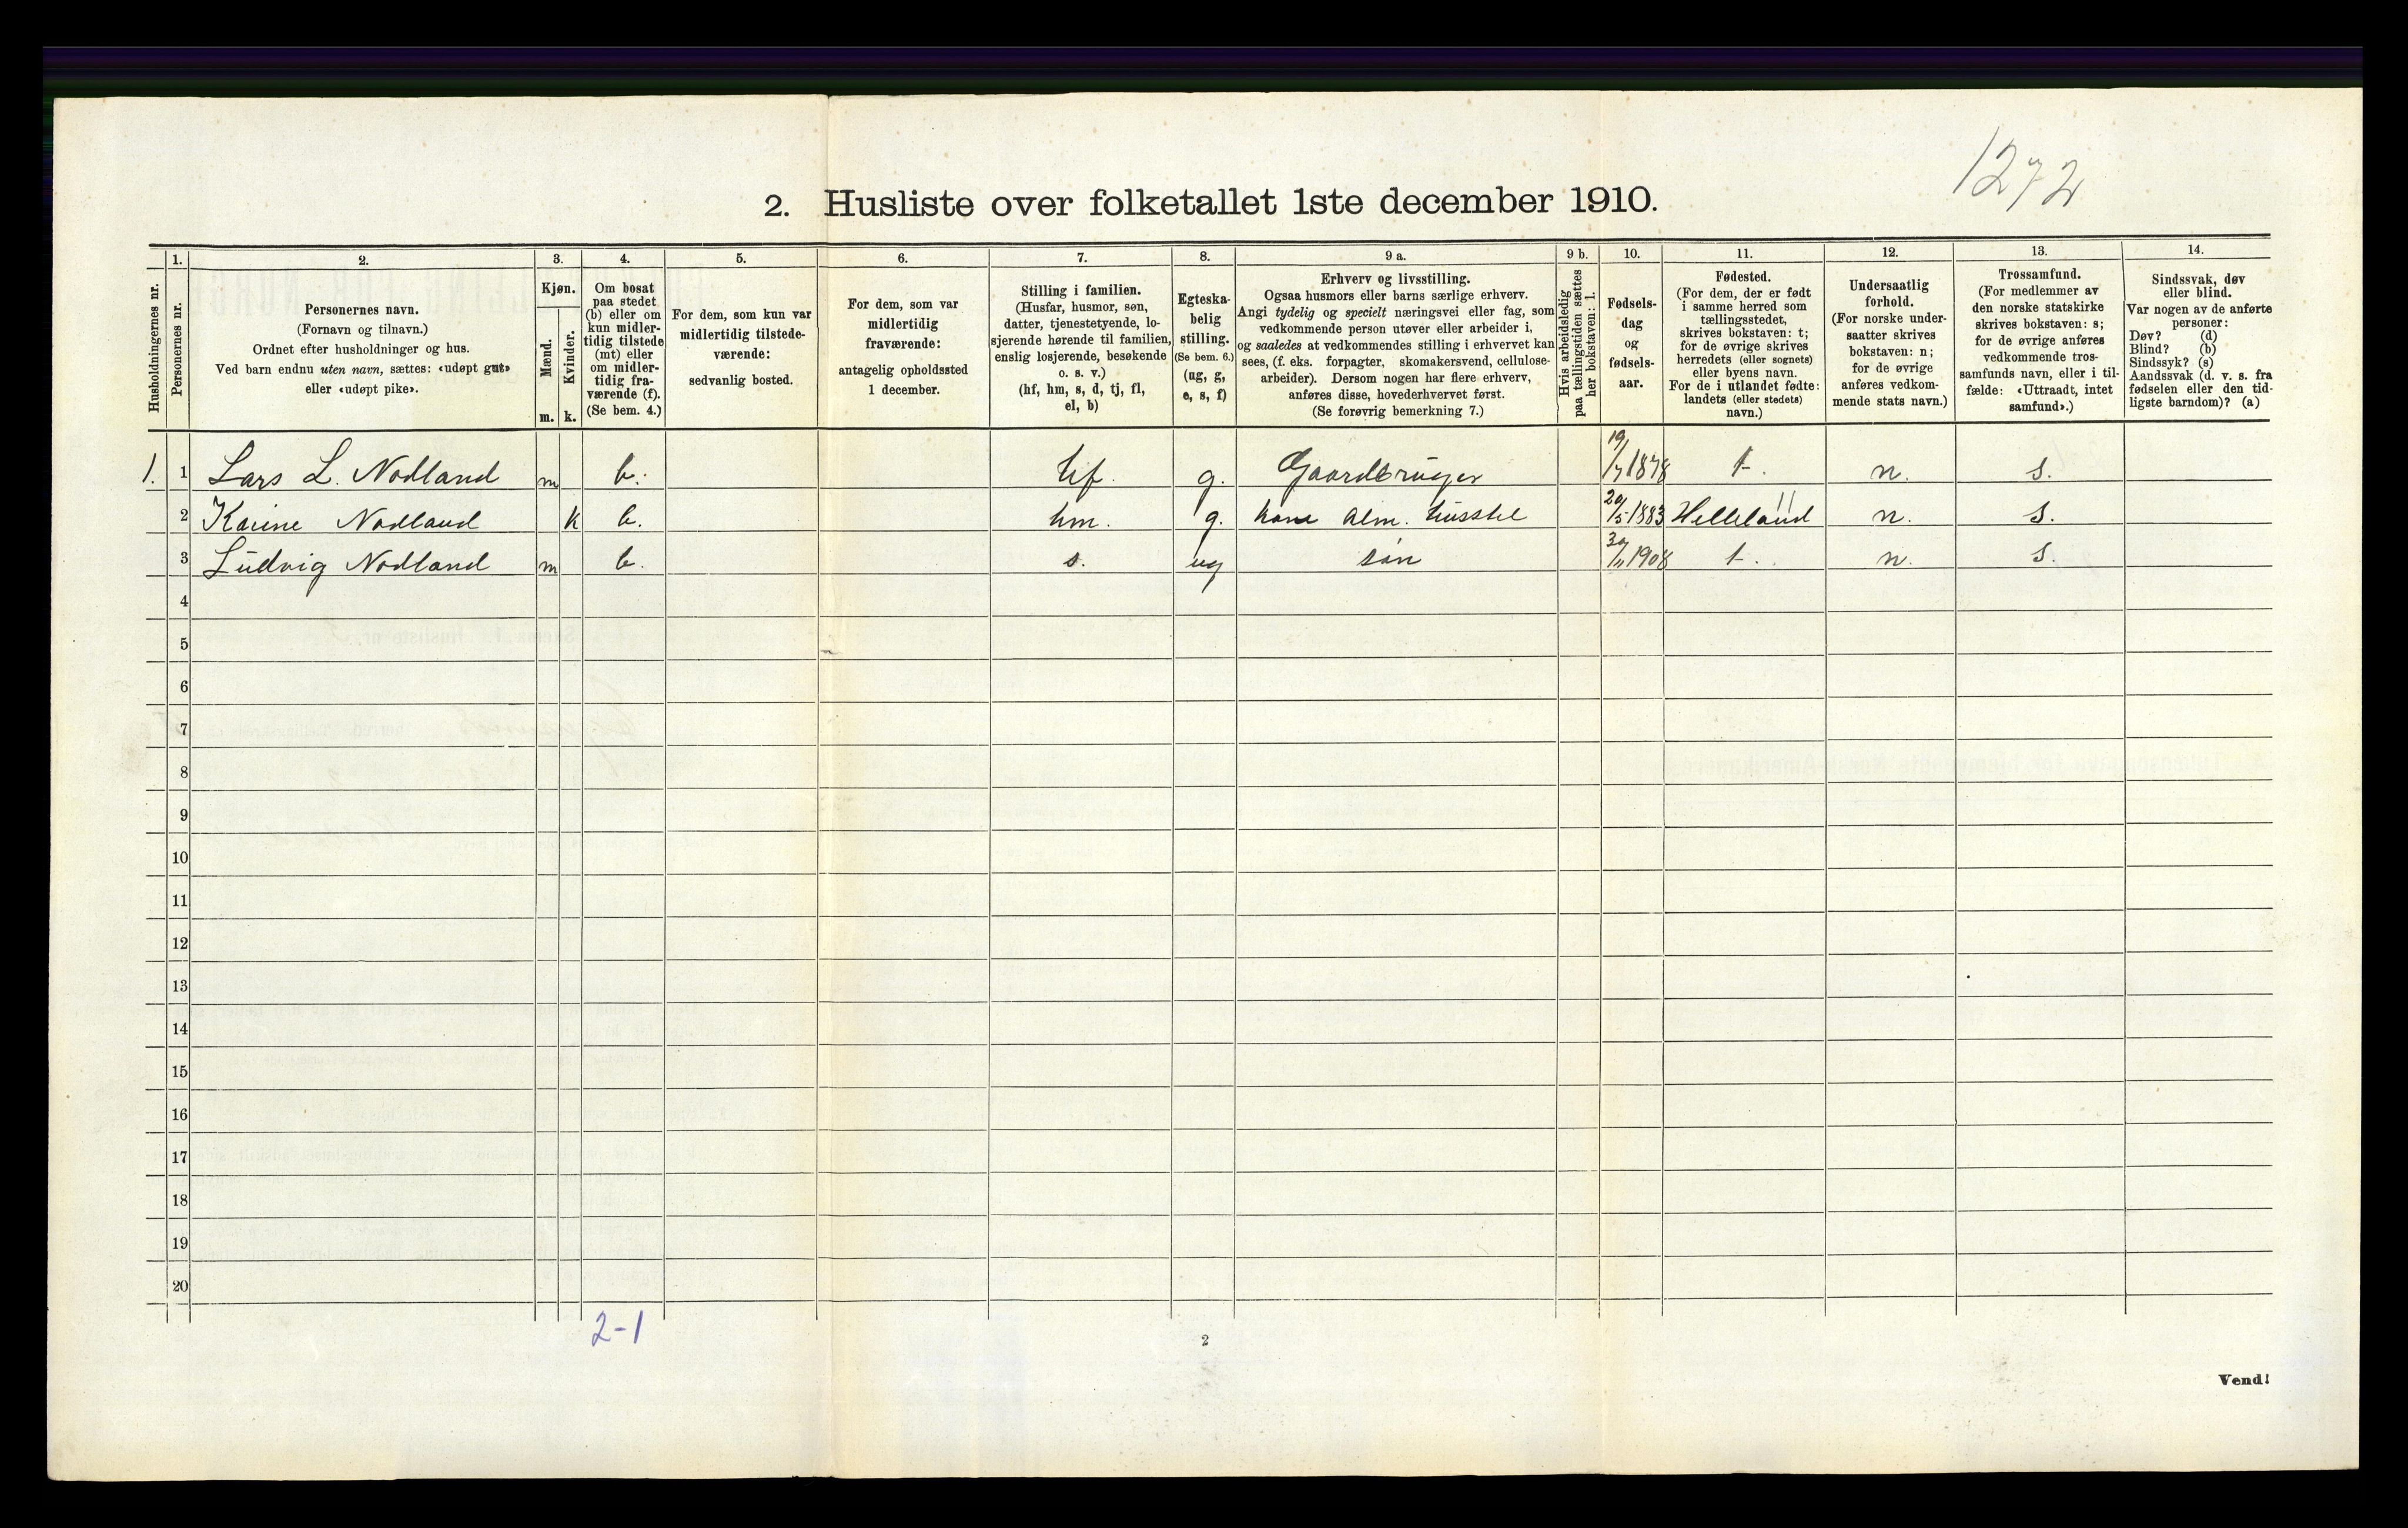 1272
2. Husliste over folketallet 1ste december 1910.
Husholdningernes nr.
1.
Personernes nr.
2.
Personernes navn.
(Fornavn og tilnavn.)
Ordnet efter husholdninger og hus.
Ved barn endnu uten navn, sættes: «udøpt gut»
eller «udøpt pike».
3.
Kjøn.
Mænd.
Kvinder.
m. k.
4.
Om bosat
paa stedet
(b) eller om
kun midler-
tidig tilstede
(mt) eller
om midler-
tidig fra-
værende (f).
(Se bem. 4.)
5.
For dem, som kun var
midlertidig tilstede-
værende:
sedvanlig bosted.
6.
For dem, som var
midlertidig
fraværende:
antagelig opholdssted
1 december.
7.
Stilling i familien.
(Husfar, husmor, søn,
datter, tjenestetyende, lo-
sjerende hørende til familien,
enslig losjerende, besøkende
o. s. v.)
(hf, hm, s, d, tj, fl,
el, b)
8.
Egteska-
belig
stilling.
(Se bem. 6.)
(ug, g,
e, s, f)
9 a.
Erhverv og livsstilling.
Ogsaa husmors eller barns særlige erhverv.
Angi tydelig og specielt næringsvei eller fag, som
vedkommende person utøver eller arbeider i,
og saaledes at vedkommendes stilling i erhvervet kan
sees, (f. eks. forpagter, skomakersvend, cellulose-
arbeider). Dersom nogen har flere erhverv,
anføres disse, hovederhvervet først.
(Se forøvrig bemerkning 7.)
9 b.
Hvis arbeidsledig
paa tællingstiden sættes
her bokstaven: l.
10.
Fødsels-
dag
og
fødsels-
aar.
11.
Fødested.
(For dem, der er født
i samme herred som
tællingsstedet,
skrives bokstaven: t;
for de øvrige skrives
herredets (eller sognets)
eller byens navn.
For de i utlandet fødte:
landets (eller stedets)
navn.)
12.
Undersaatlig
forhold.
(For norske under-
saatter skrives
bokstaven: n;
for de øvrige
anføres vedkom-
mende stats navn.)
13.
Trossamfund.
(For medlemmer av
den norske statskirke
skrives bokstaven: s;
for de øvrige anføres
vedkommende tros-
samfunds navn, eller i til-
fælde: «Uttraadt, intet
samfund».)
14.
Sindssvak, døv
eller blind.
Var nogen av de anførte
personer:
Døv? (d)
Blind? (b)
Sindssyk? (s)
Aandssvak (d. v. s. fra
fødselen eller den tid-
ligste barndom)? (a)
1. 1 Lars L. Nodland m b. hf. g. Gaardbruger 19/7 1878 t. n. s.
2 Karine Nodland k b. hm. g. kone alm. husstel 20/5 1883 Helleland n. s.
3 Ludvig Nodland m b. s. ug søn 30/11 1908 t. n. s.
4
5
6
7
8
9
10
11
12
13
14
15
16
17
18
19
20
2-1
2
Vend!